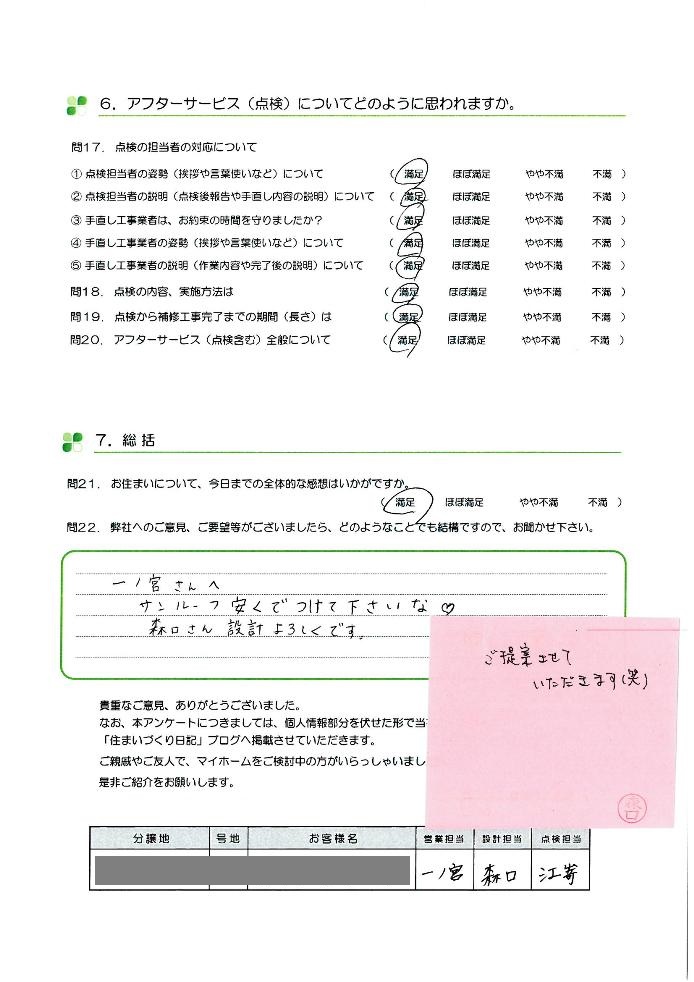 6. アフターサービス（点検）についてどのように思われますか。
問17. 点検の担当者の対応について
① 点検担当者の姿勢（挨拶や言葉使いなど）について （ 満足 ほぼ満足 やや不満 不満 ）
② 点検担当者の説明（点検後報告や手直し内容の説明）について （ 満足 ほぼ満足 やや不満 不満 ）
③ 手直し工事業者は、お約束の時間を守りましたか？ （ 満足 ほぼ満足 やや不満 不満 ）
④ 手直し工事業者の姿勢（挨拶や言葉使いなど）について （ 満足 ほぼ満足 やや不満 不満 ）
⑤ 手直し工事業者の説明（作業内容や完了後の説明）について （ 満足 ほぼ満足 やや不満 不満 ）
問18. 点検の内容、実施方法は （ 満足 ほぼ満足 やや不満 不満 ）
問19. 点検から補修工事完了までの期間（長さ）は （ 満足 ほぼ満足 やや不満 不満 ）
問20. アフターサービス（点検含む）全般について （ 満足 ほぼ満足 やや不満 不満 ）
7. 総 括
問21. お住まいについて、今日までの全体的な感想はいかがですか。
（ 満足 ほぼ満足 やや不満 不満 ）
問22. 弊社へのご意見、ご要望等がございましたら、どのようなことでも結構ですので、お聞かせ下さい。
一ノ宮さんへ
サンルーフ 安くでつけて下さいな♡
森口さん 設計よろしくです。
ご提案させて
いただきます(笑)
貴重なご意見、ありがとうございました。
なお、本アンケートにつきましては、個人情報部分を伏せた形で当
「住まいづくり日記」ブログへ掲載させていただきます。
ご親戚やご友人で、マイホームをご検討中の方がいらっしゃいまし
是非ご紹介をお願いします。
森口
分譲地 号地 お客様名 営業担当 設計担当 点検担当
一ノ宮 森口 江嵜